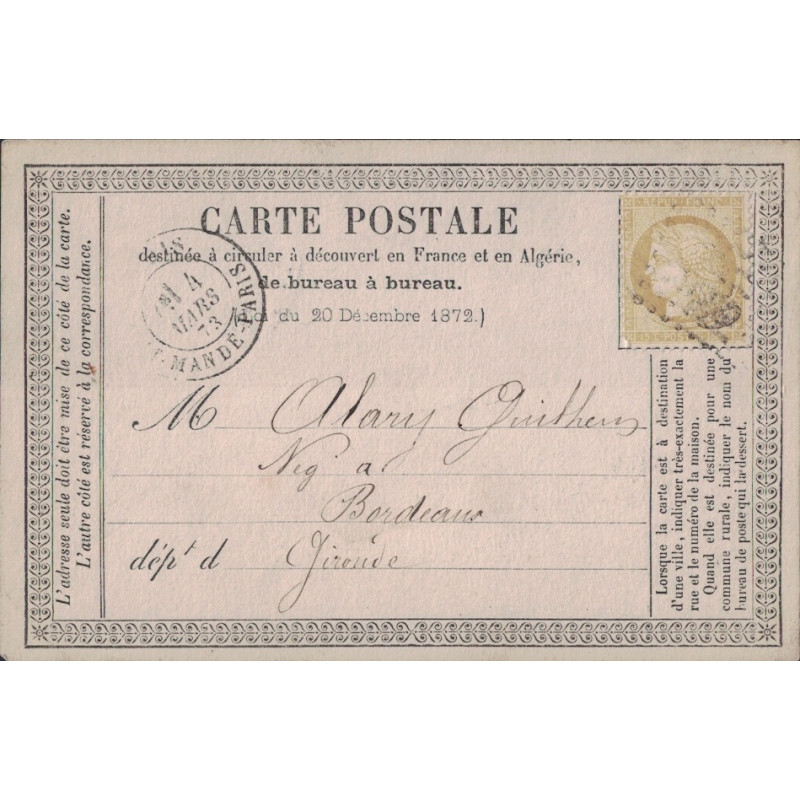 CARTE POSTALE
destinée à circuler à découvert en France et en Algérie,
de bureau à bureau.
(Loi du 20 Décembre 1872.)
4
MARS
73
MANDÉ-PARIS
REPUB FRANC
15 C POSTES
M Alary
Neg. a
Bordeaux
dépt d Gironde
L'adresse seule doit être mise de ce côté de la carte.
L'autre côté est réservé à la correspondance.
Lorsque la carte est à destination
d'une ville, indiquer très-exactement la
rue et le numéro de la maison.
Quand elle est destinée pour une
commune rurale, indiquer le nom du
bureau de poste qui la dessert.